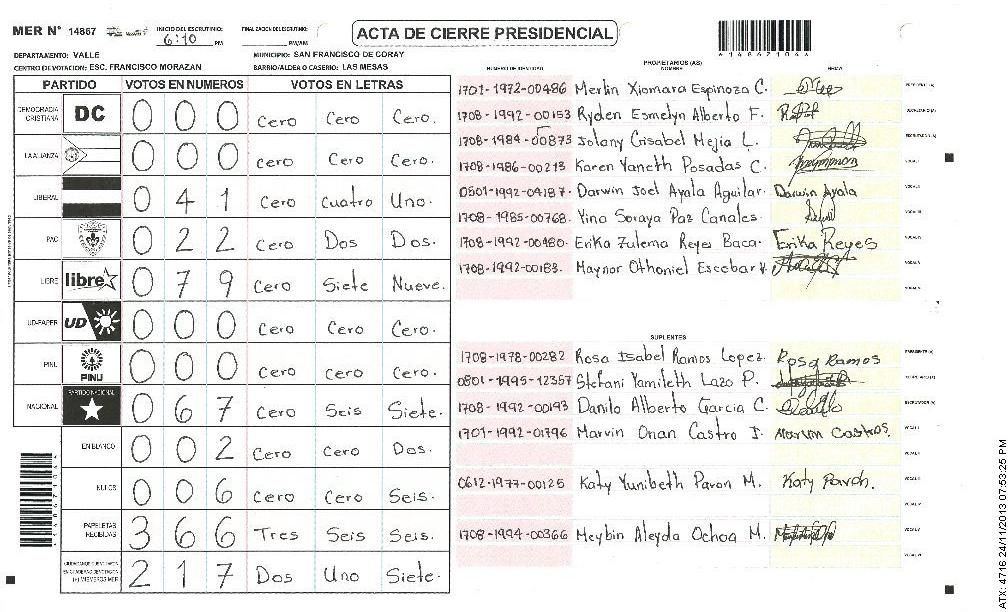 MER N° 14867 INICIO DEL ESCRUTINIO: 6:10 PM FINALIZACION DEL ESCRUTINIO: PM/AM
ACTA DE CIERRE PRESIDENCIAL
148671064
DEPARTAMENTO: VALLE MUNICIPIO: SAN FRANCISCO DE CORAY
CENTRO DE VOTACION: ESC. FRANCISCO MORAZAN BARRIO/ALDEA O CASERIO: LAS MESAS
PARTIDO VOTOS EN NUMEROS VOTOS EN LETRAS
DEMOCRACIA CRISTIANA DC 0 0 0 Cero Cero Cero.
LA ALIANZA 0 0 0 Cero Cero Cero.
LIBERAL 0 4 1 Cero Cuatro Uno.
PAC 0 2 2 Cero Dos Dos.
LIBRE libre 0 7 9 Cero Siete Nueve.
UD-FAPER UD 0 0 0 Cero Cero Cero.
PINU PINU 0 0 0 Cero Cero Cero.
NACIONAL PARTIDO NACIONAL 0 6 7 Cero Seis Siete.
EN BLANCO 0 0 2 Cero Cero Dos.
NULOS 0 0 6 Cero Cero Seis.
PAPELETAS RECIBIDAS 3 6 6 Tres Seis Seis.
(+) MIEMBROS MER 2 1 7 Dos Uno Siete.
PROPIETARIOS (AS)
NUMERO DE IDENTIDAD NOMBRE FIRMA
1701-1972-00486 Merlin Xiomara Espinoza C. PRESIDENTE (A)
1708-1992-00153 Ryden Esmelyn Alberto F. SECRETARIO (A)
1708-1984-00873 Jolany Grisabel Mejia L. ESCRUTADOR (A)
1708-1986-00213 Karen Yaneth Posadas C. VOCAL I
0501-1992-04187. Darwin Joel Ayala Aguilar. Darwin Ayala VOCAL II
1708-1985-00768. Yina Soraya Paz Canales. VOCAL III
1708-1992-00480. Erika Zulema Reyes Baca. Erika Reyes VOCAL IV
1708-1992-00183. Maynor Othoniel Escobar VOCAL V
VOCAL VI
SUPLENTES
1708-1978-00282 Rosa Isabel Ramos Lopez. Rosa Ramos PRESIDENTE (A)
0801-1995-12357 Stefani Yamileth Lazo P. SECRETARIO (A)
1708-1992-00193 Danilo Alberto Garcia C. ESCRUTADOR (A)
1701-1992-01796 Marvin Onan Castro J. Marvin Castros. VOCAL I
VOCAL II
0612-1977-00125 Katy Yunibeth Pavon M. Katy Pavon. VOCAL III
VOCAL IV
1708-1994-00366 Meybin Aleyda Ochoa M. VOCAL V
VOCAL VI
ATX: 4716 24/11/2013 07:53:25 PM